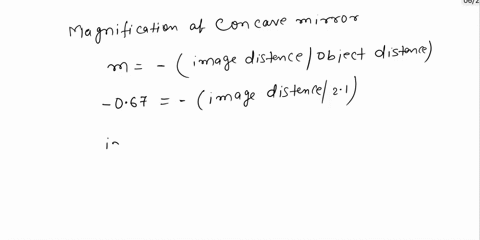 Magnification of Concave mirror
m = - (image distence / object distence)
-0.67 = - (image distence / 2.1)